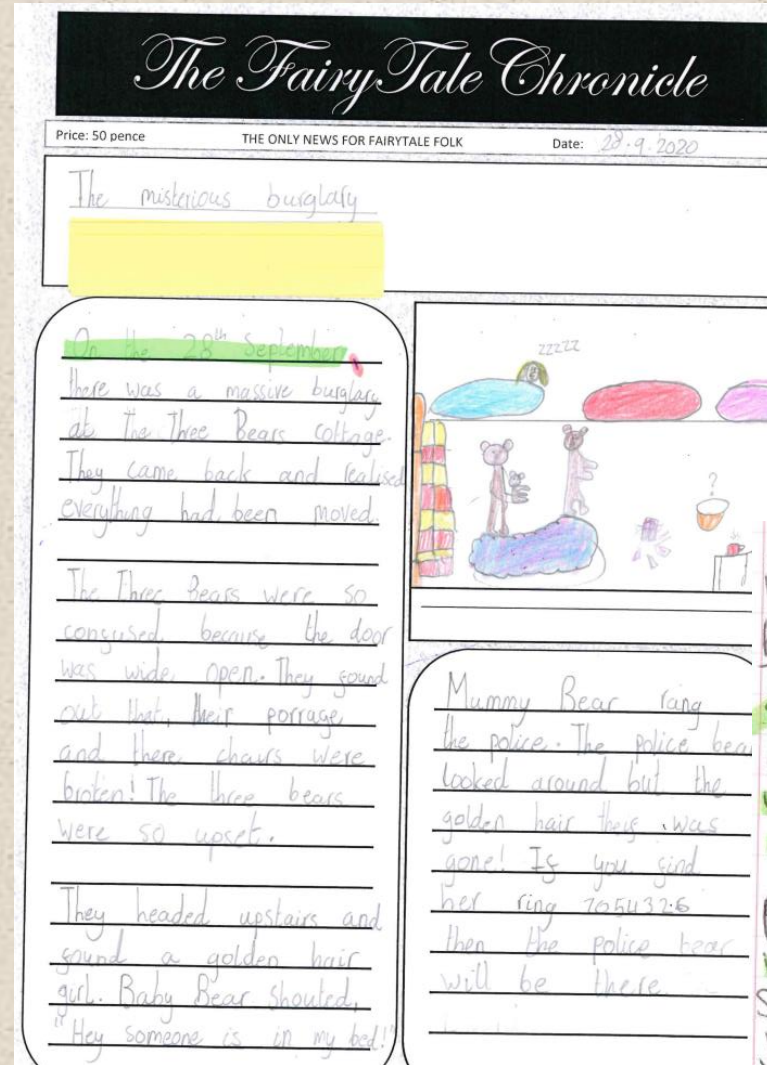 The Fairy Tale Chronicle
Price: 50 pence THE ONLY NEWS FOR FAIRYTALE FOLK Date: 28.9.2020
The misterious burglary
On the 28th September,
there was a massive burglary
at The Three Bears cottage.
They came back and realised
everything had been moved.
The Three Bears were so
congused because the door
was wide open. They gound
out that, their porrage
and there chairs were
broken! The three bears
were so upset.
They headed upstairs and
gound a golden hair
girl. Baby Bear shouted,
"Hey someone is in my bed!"
zzzzz
?
Mummy Bear rang
the police. The police bear
looked around but the
golden hair theig was
gone! Ig you gind
her ring 7054326
then the police bear
will be there